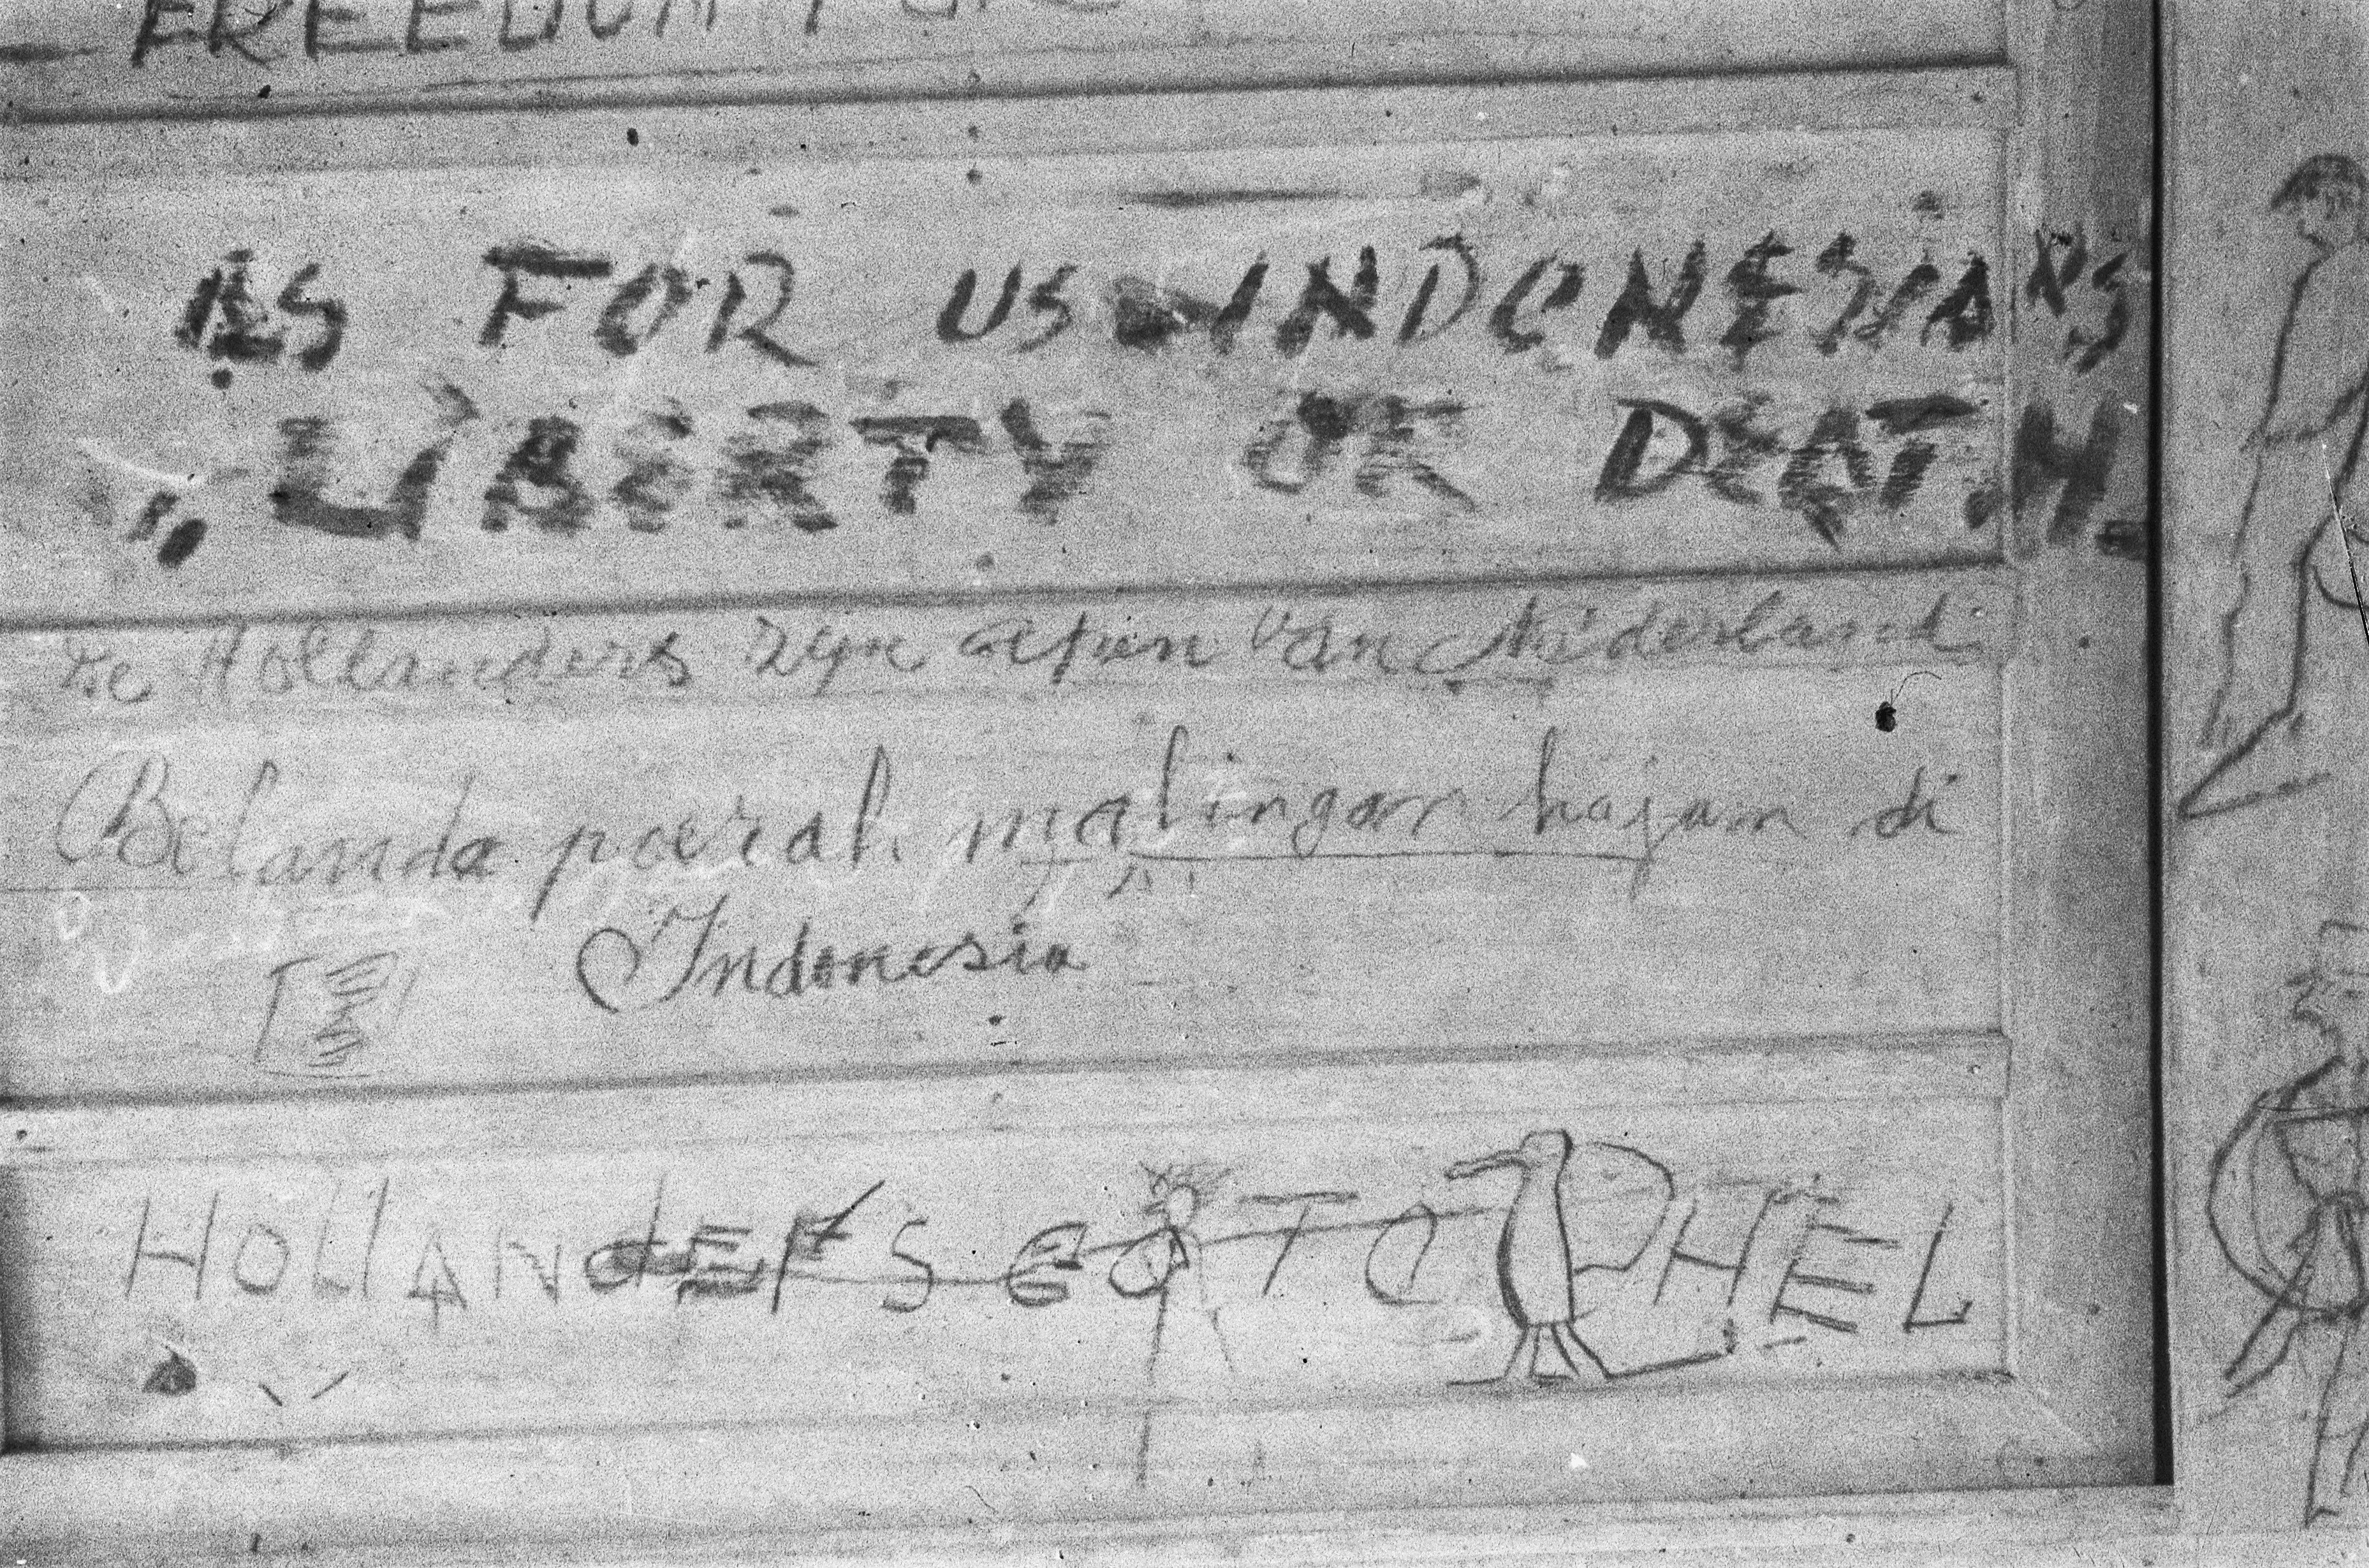 FREEDOM FOR
AS FOR US INDONESIANS
LIBERTY OR DEATH
De Hollanders zyn apen van Nederland
Belanda poerah malingan hajam di
Indonesia
HOLLANdERS GO TO HEL